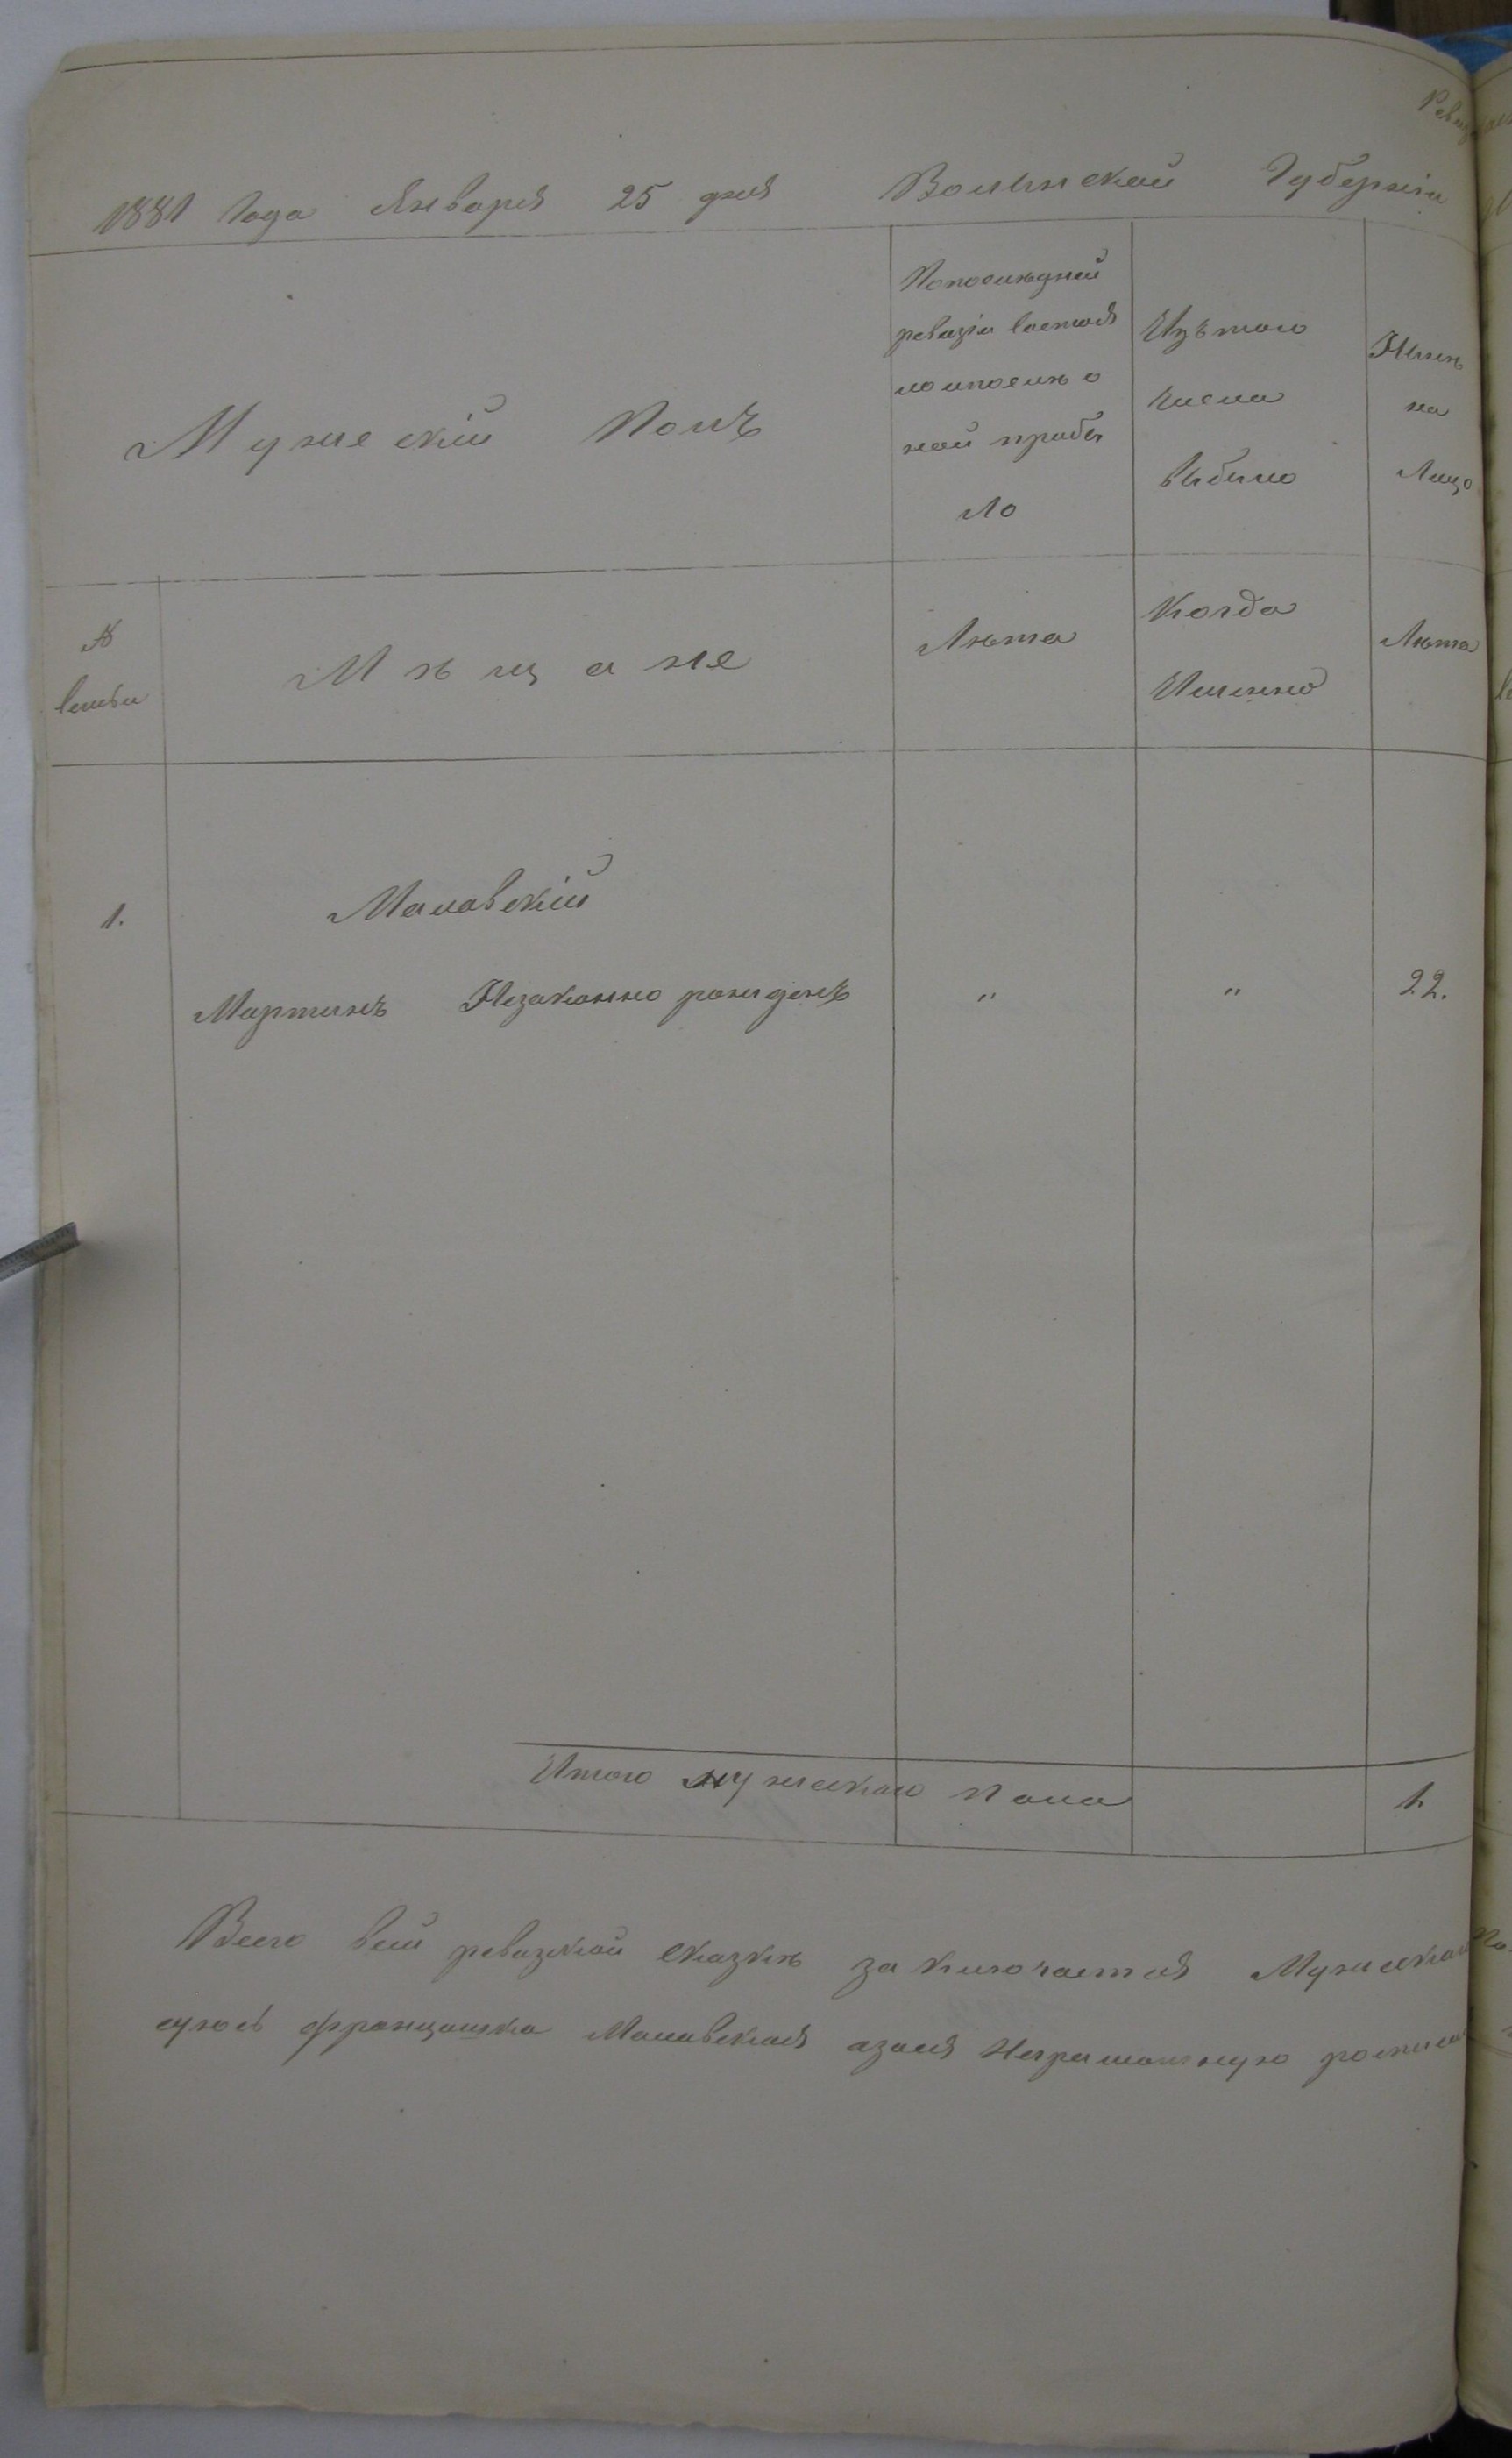 Ревиз
1881 Года Января 25 дня Волынской Губерніи
Мужескій Полъ
Попослѣдней
ревизіи состоя
ло ипослѣ о
ной прибы
ло
Изътого
числа
выбыло
Нынѣ
на
Лицо
№
семьи
Мѣщане
Лѣта
Когда
Именно
Лѣта
1.
Малавскій
Мартинъ Незаконно рожденъ
"
"
22.
Итого мужескаго пола
1
Всего всей ревизской сказкѣ заключается Мужескаго
Францишка Малавская азася Неграмотную